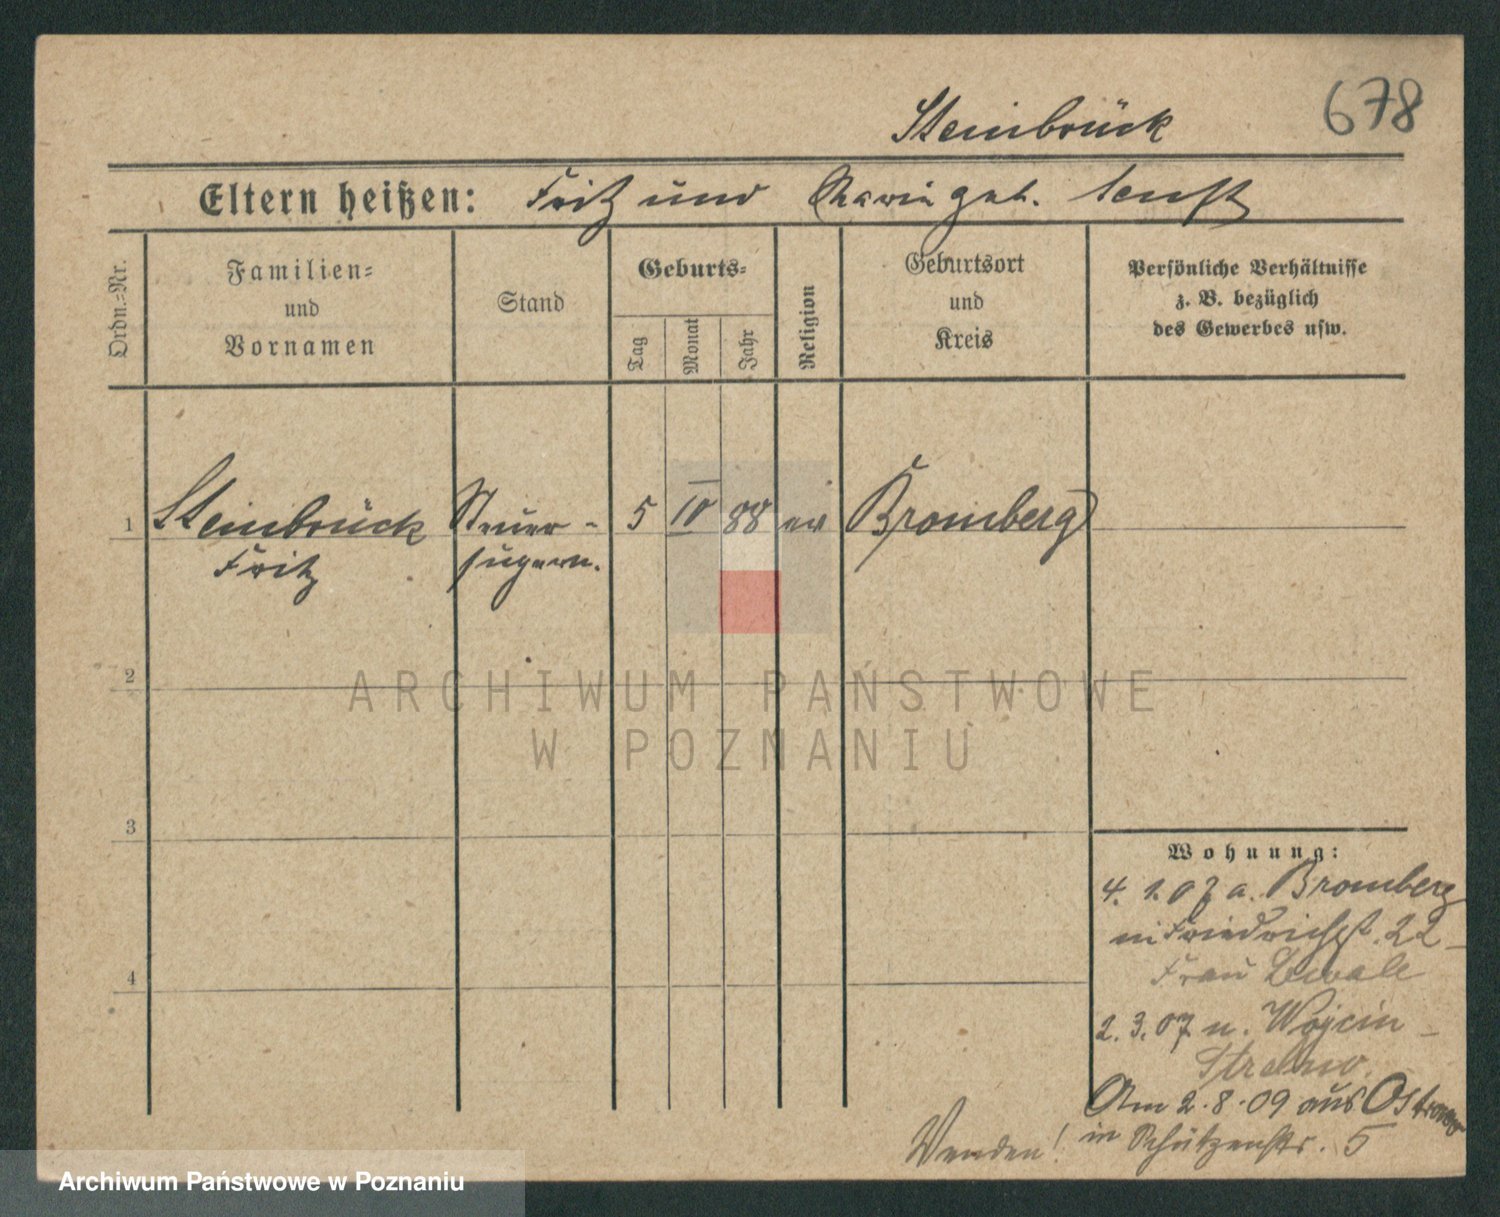 678
Steinbrück
Eltern heißen: Fritz und Marie geb. Senft
Ordn.=Nr.
Familien=
und
Vornamen
Stand
Geburts=
Tag
Monat
Jahr
Religion
Geburtsort
und
Kreis
Persönliche Verhältnisse
z. B. bezüglich
des Gewerbes usw.
1 Steinbrück Steuer- 5 IV 88 ev Bromberg
Fritz supern.
2
3
4
Wohnung:
4. 1. 07 a. Bromberg
in Friedrichst. 22
Frau
2. 3. 07 n. Wojcin
Strelno.
Am 2.8.09 aus Ostrowo
in Schützenstr. 5
Wenden!
ARCHIWUM PAŃSTWOWE
W POZNANIU
Archiwum Państwowe w Poznaniu